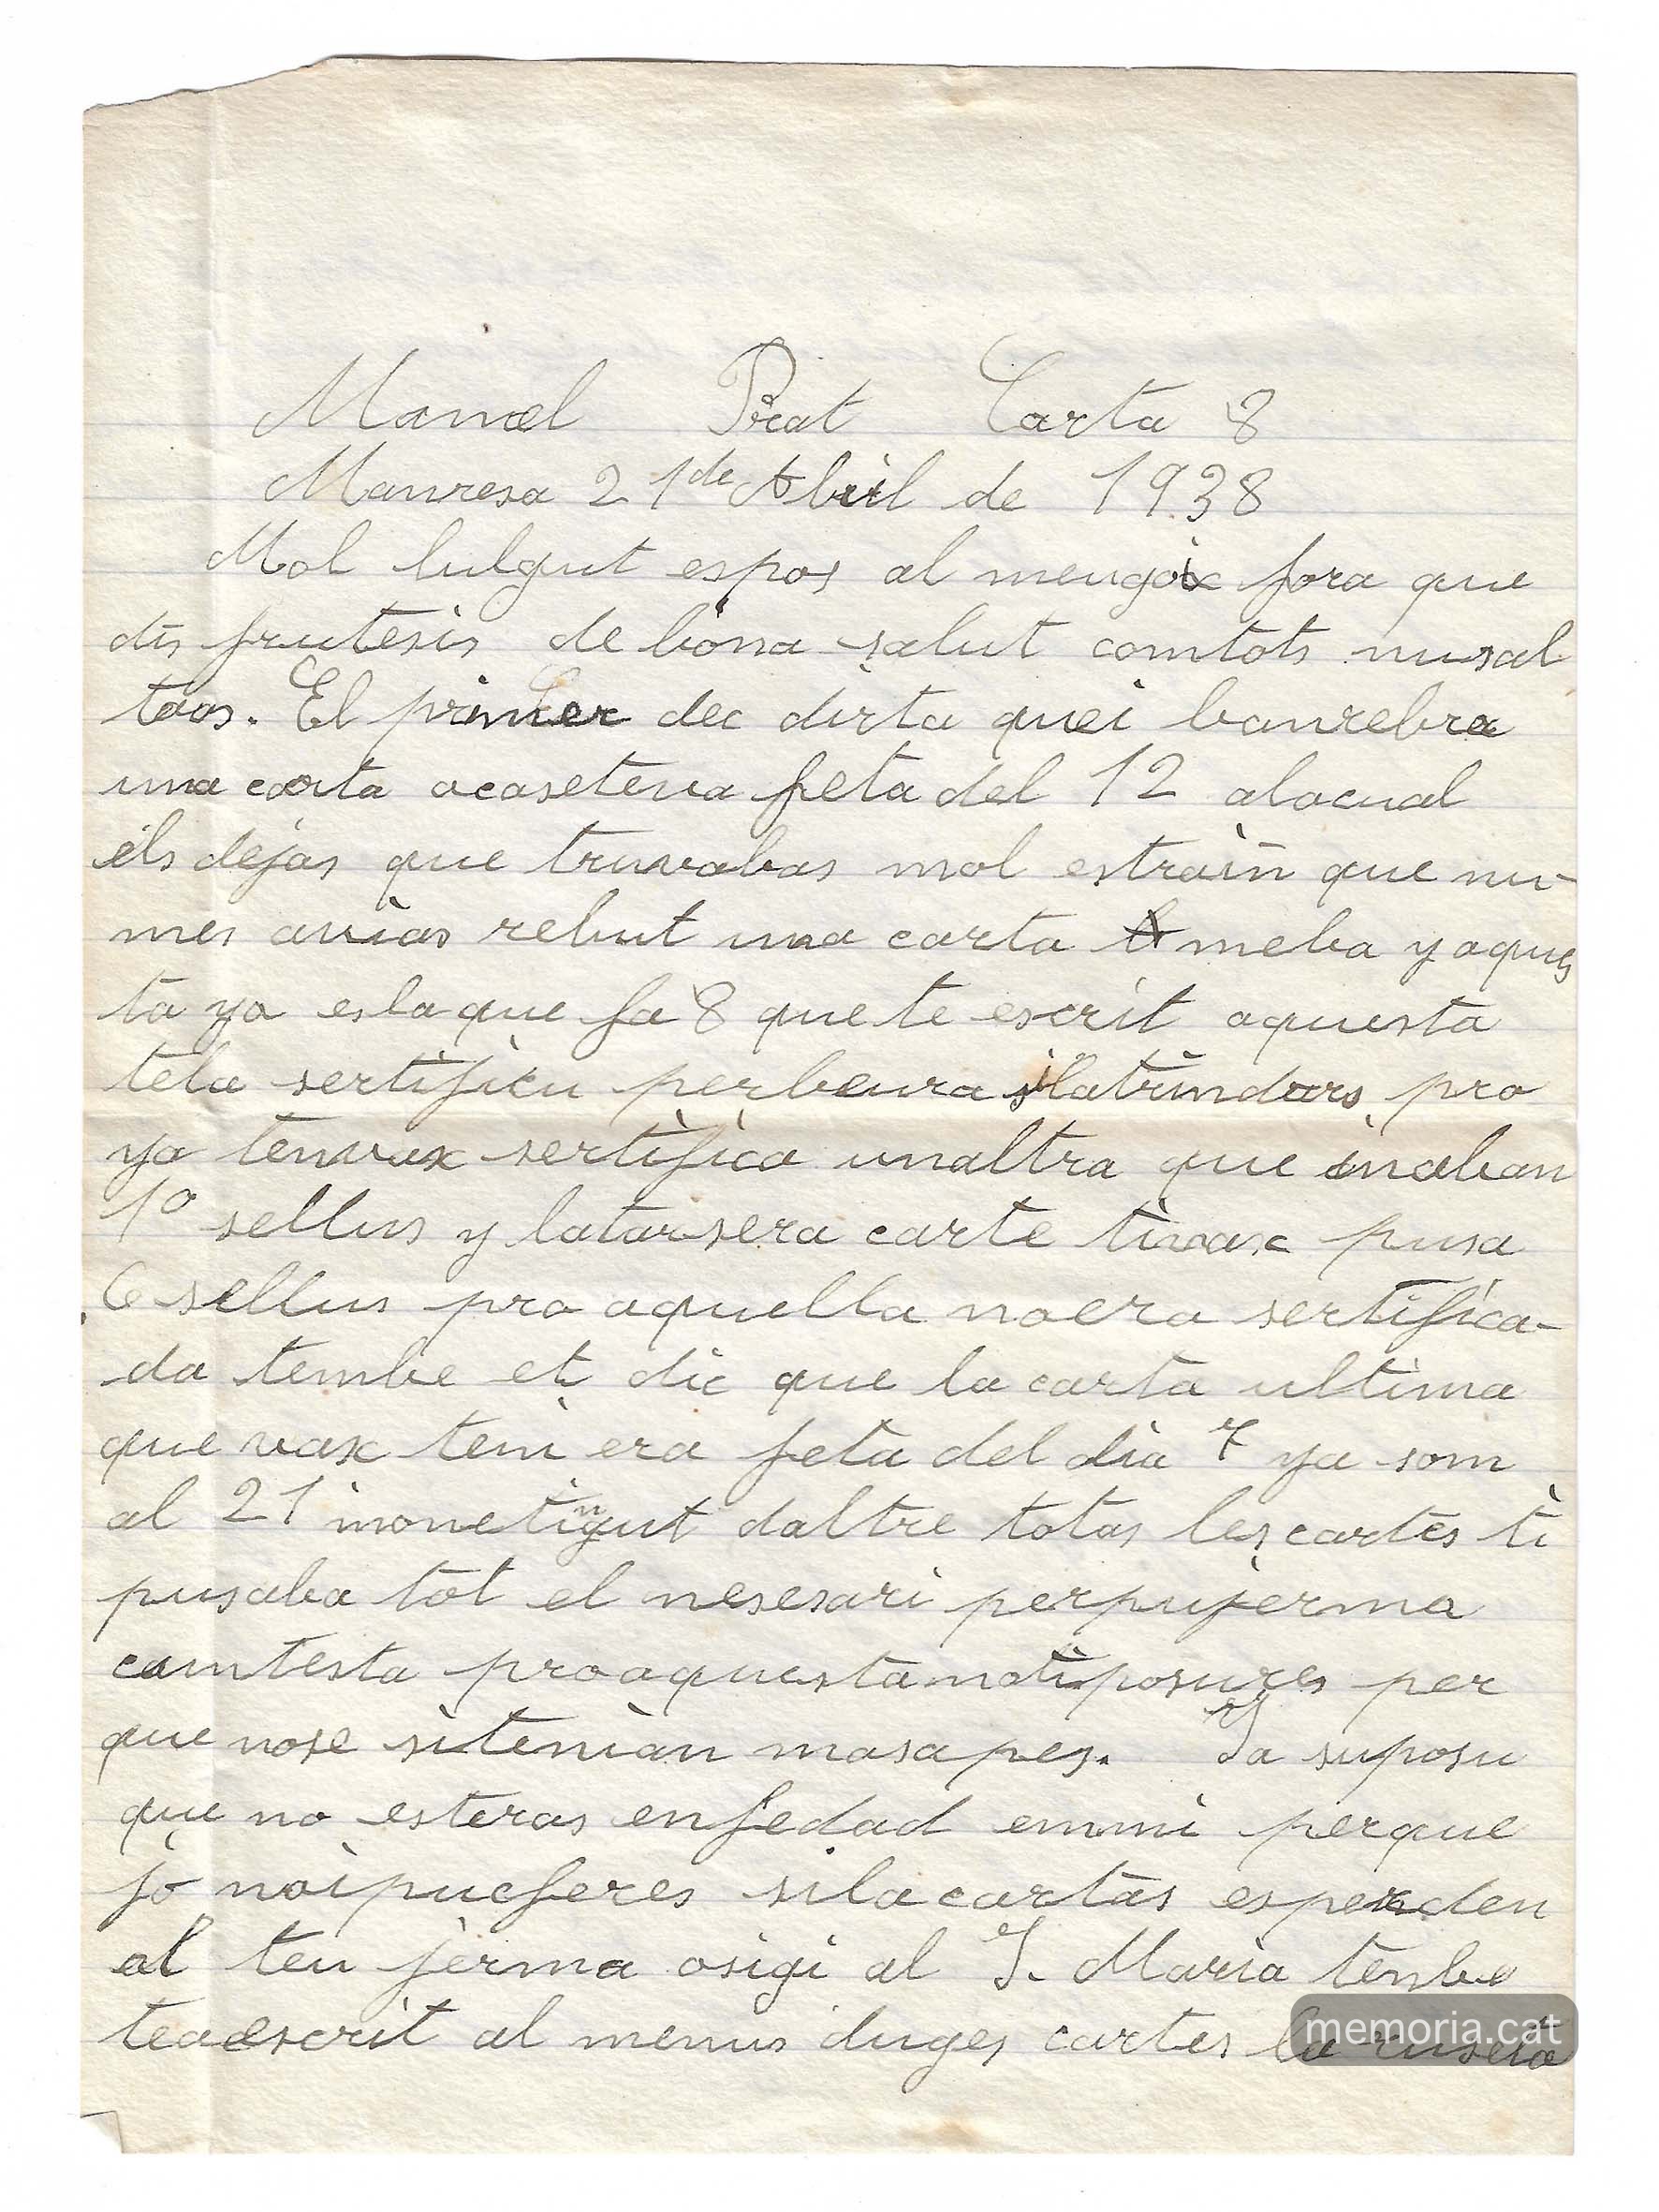 Manel Prat Carta 8
Manresa 21 de Abril de 1938
Mol bulgut espos al meugoix fora que
disfrutesis de bona salut comtots nusal
tras. El primer dec dirta quei banrebra
una carta acaseteva feta del 12 alacual
els dejas que truvabas mol estrain que nu-
mes avias rebut una carta meba y aques
ta ya eslaque fa 8 quete escrit aquesta
tela sertificu perbeura silatindras pro
ya tenvax sertifica unaltra que inaban
10 sellus y latarsera carte tivax pusa
6 sellus pro aquella noera sertifica-
da tembe et dic que la carta ultima
que vax teni era feta del dia 7 ya som
al 21 inonetingut daltre totas les cartes ti
pusaba tot el nesesari perpujerma
camtesta proaquestanotiposures per
que nose sitenian masapes. Ja suposu
que no esteras enfedad emmi perque
jo noipucferes silacartas esperden
al teu jerma osigi al J. Maria tembe
teaescrit al menus duges cartes la ruseta
memoria.cat